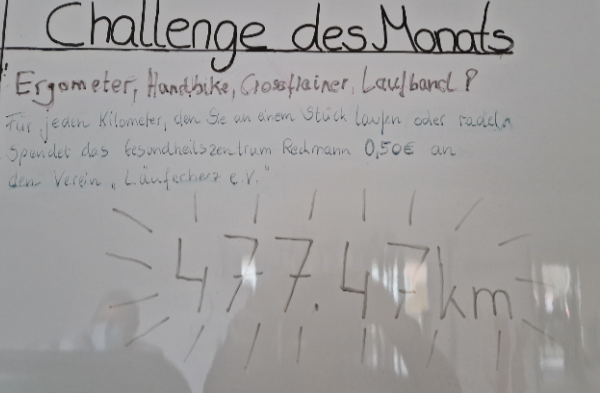 Challenge des Monats
Ergometer, Handbike, Crosstrainer, Laufband ?
Für jeden Kilometer, den Sie an einem Stück laufen oder radeln
Spendet das Gesundheitszentrum Reckmann 0,50€ an
den Verein „Läuferherz e.V."
477.47km